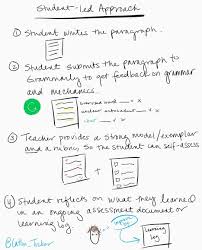 Student-Led Approach
① Student writes the paragraph.
② Student submits the paragraph to
Grammarly to get feedback on grammar
and mechanics.
③ Teacher provides a strong model/exemplar
and a rubric so the student can self-assess
④ Student reflects on what they learned
in an ongoing assessment document or
learning log.
Learning
Log
@Catlin_Tucker